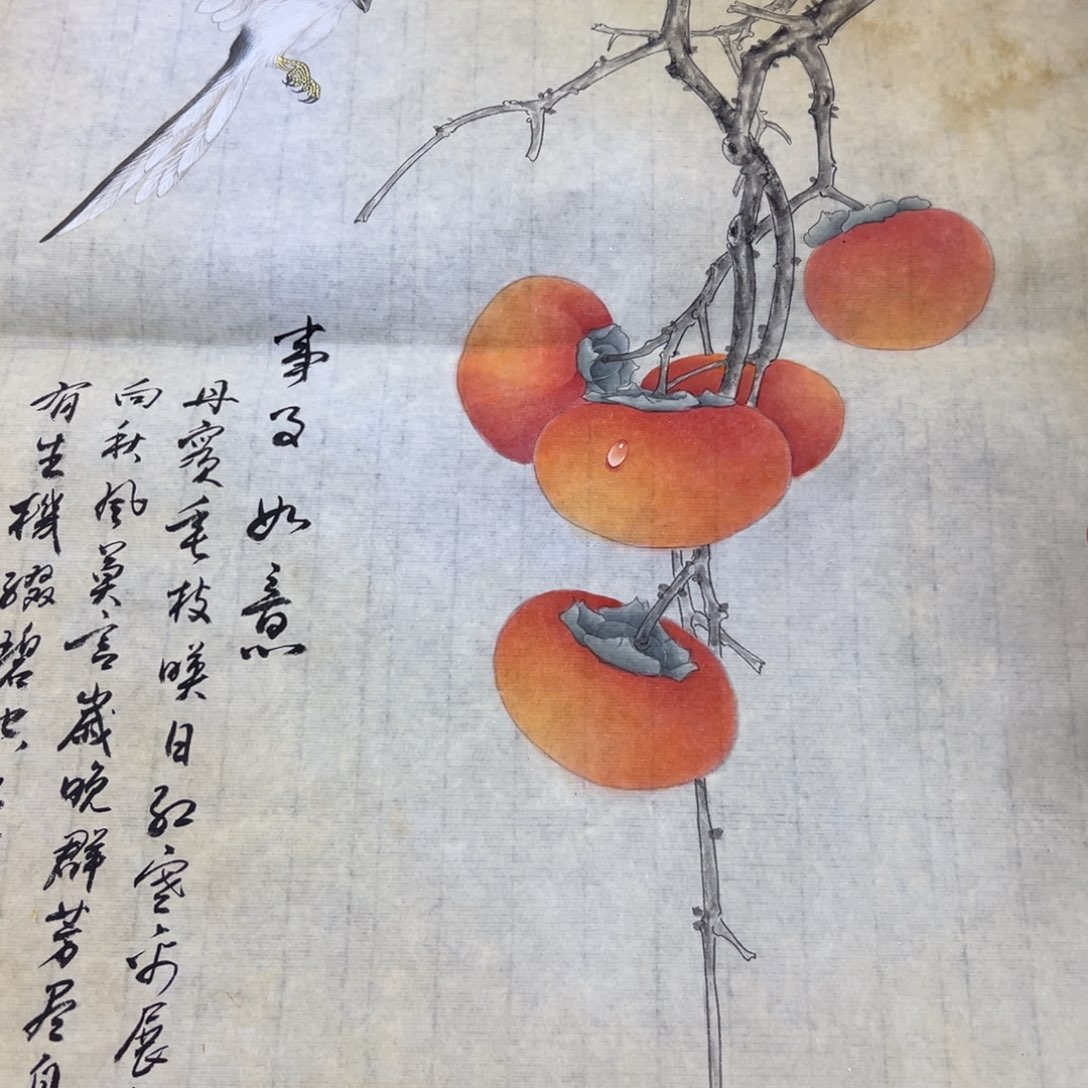 事事如意
丹實垂枝暎日紅寒展
向秋風莫言歲晚群芳尽自
有生機綴碧空